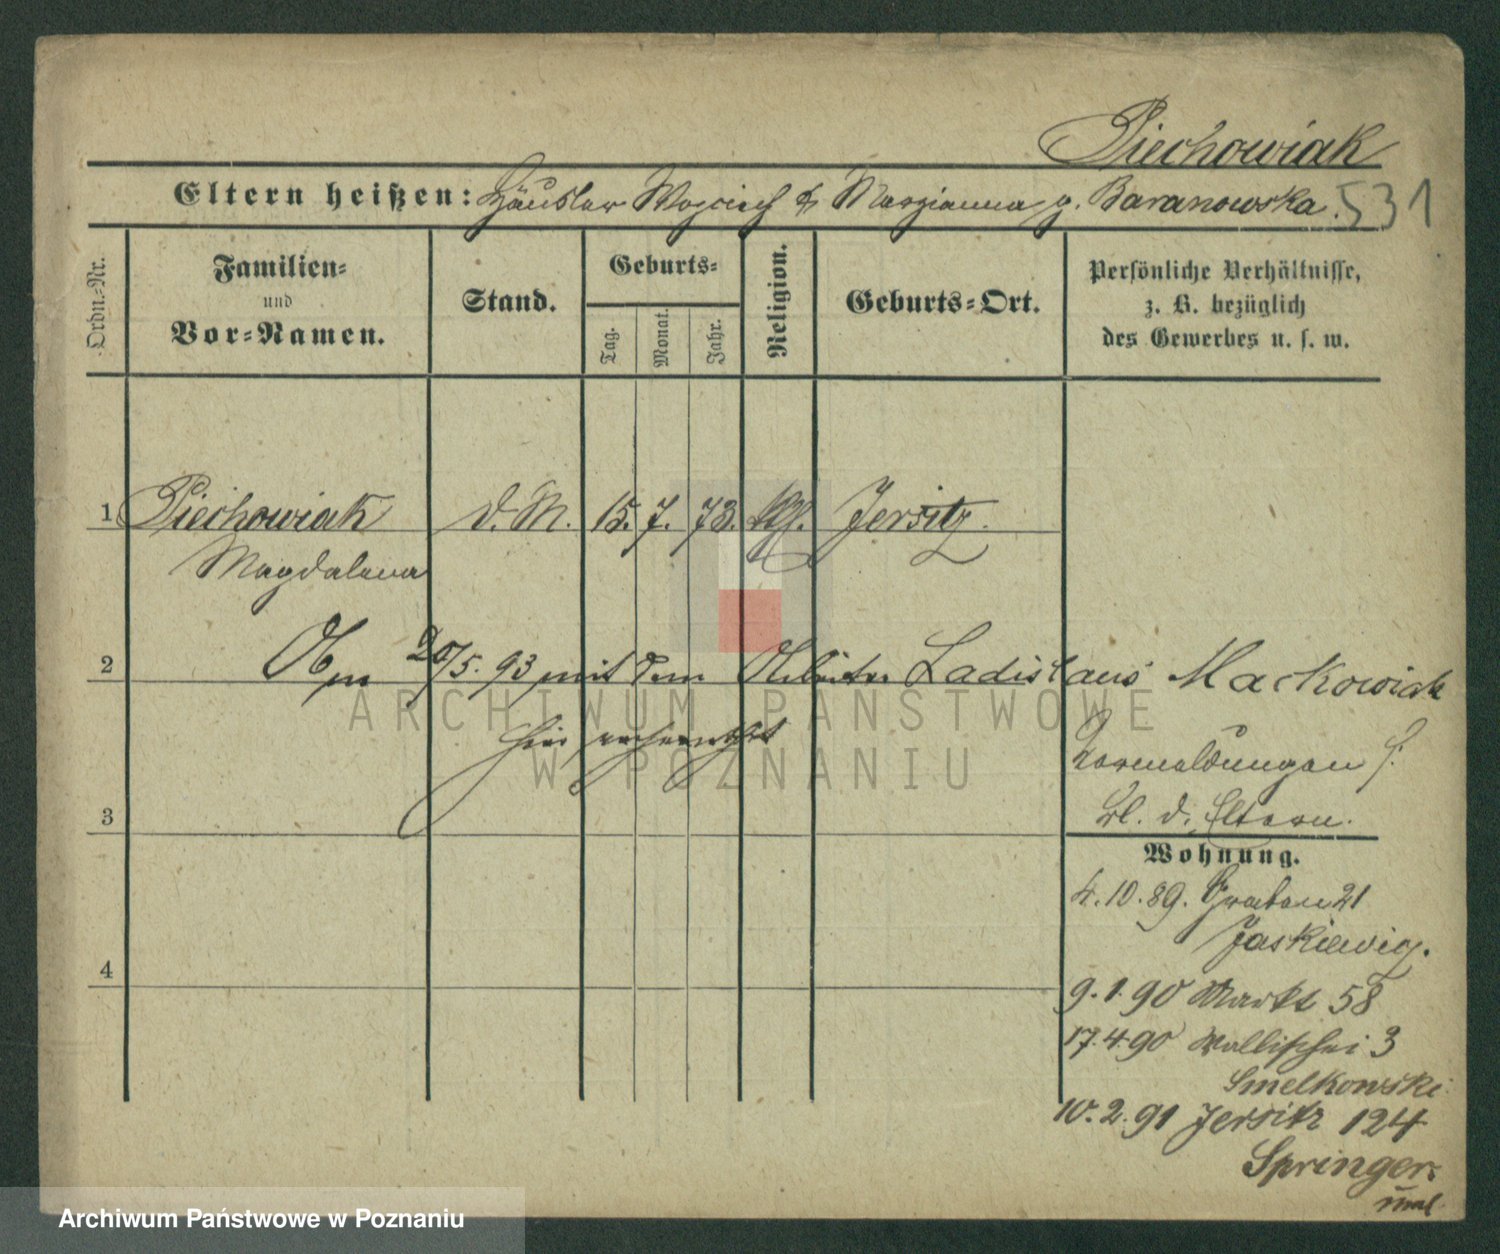 Piechowiak
Eltern heißen: Häusler Wojciech & Marzianna g. Baranowska. 531
Ordn.-Nr.
Familien- und Vor-Namen.
Stand.
Geburts-
Tag. Monat. Jahr.
Religion.
Geburts-Ort.
Persönliche Verhältnisse, z. B. bezüglich des Gewerbes u. s. w.
1 Piechowiak d. M. 15. 7. 73. kth. Jersitz.
Magdalena
2 20/5. 93 mit dem Arbeiter Ladislaus Mackowiak
hier verheirathet
Vormeldungen s.
Bl. d. Eltern.
3
Wohnung.
4. 10. 89. Graben 21
Jaskiewicz.
4
9. 1. 90 Markt 58
17. 4. 90 Wallischei 3
Smelkowski
10. 2. 91 Jersitz 124
Springer.
ARCHIWUM PAŃSTWOWE
W POZNANIU
Archiwum Państwowe w Poznaniu